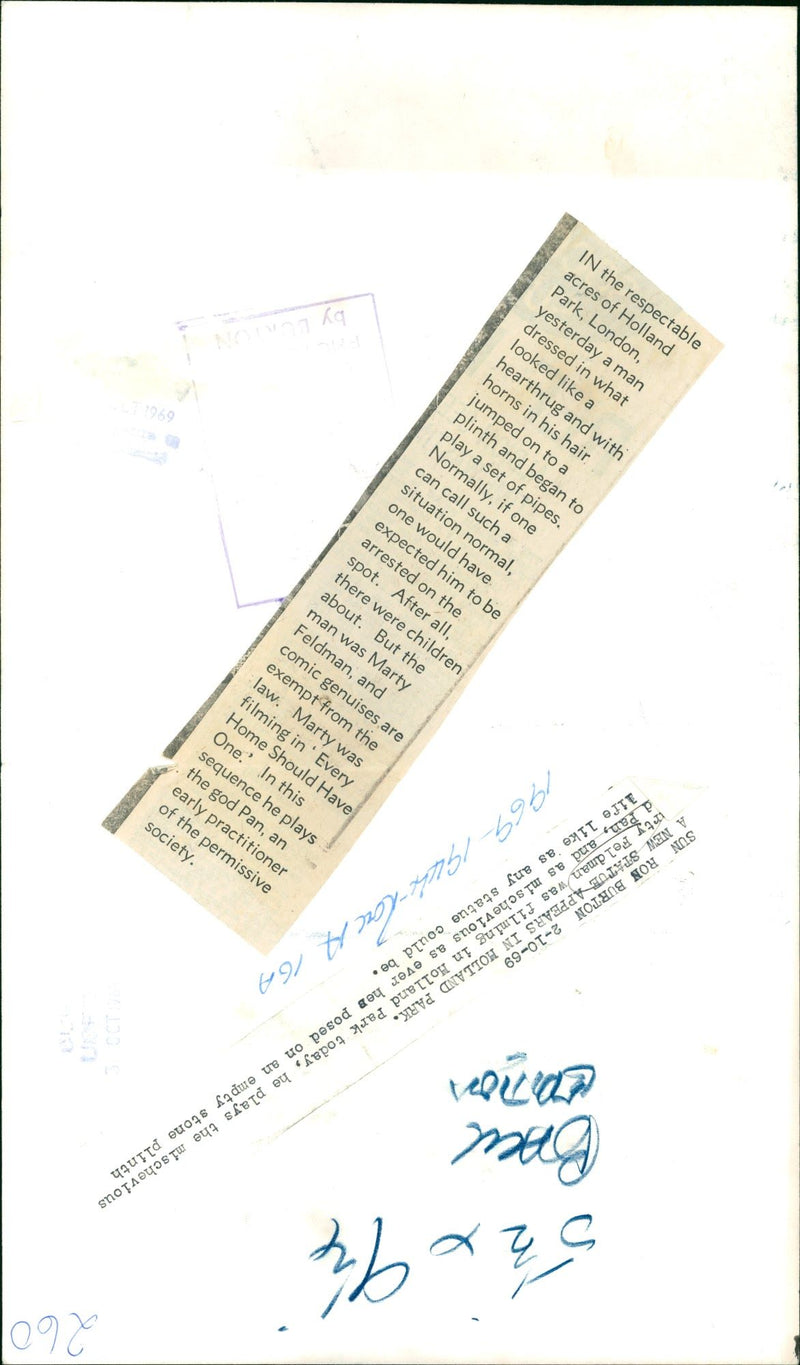 IN the respectable
acres of Holland
Park, London,
yesterday a man
dressed in what
looked like a
hearthrug and with
horns in his hair
jumped on to a
plinth and began to
play a set of pipes.
Normally, if one
can call such a
situation normal,
one would have
expected him to be
arrested on the
spot. After all,
there were children
about. But the
man was Marty
Feldman, and
comic genuises are
exempt from the
law. Marty was
filming in ' Every
Home Should Have
One.' In this
sequence he plays
the god Pan, an
early practitioner
of the permissive
society.
by BURTON
1969
SUN RON BURTON 2-10-69
A NEW STATUE APPEARS IN HOLLAND PARK.
rty Feldman was filming in Holland Park today, he plays the mischevious
d Pan, and as mischevious as ever hes posed on an empty stone plinth
life like as any statue could be.
3 OCT
BACK
5½ x 9¼
260